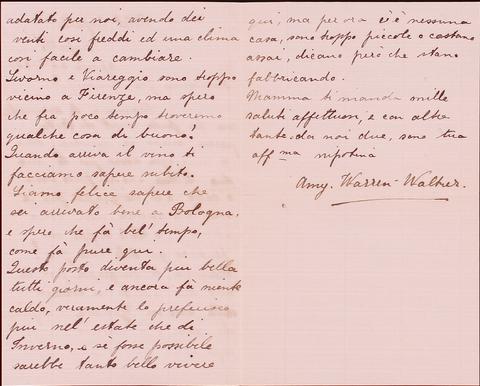 adatato per noi, avendo dei
venti cosi freddi ed una clima
cosi facile a cambiare.
Livorno e Viareggio sono troppo
vicino a Firenze, ma spero
che fra poco tempo troveremo
qualche cosa di buono!
Quando arriva il vino ti
facciamo sapere subito.
Siamo felice sapere che
sei arrivato bene a Bologna,
e spero che fà bel' tempo,
come fà pure qui.
Questo posto diventa piu bella
tutti giorni, e ancora fà niente
caldo, veramente lo preferisco
piu nell' estate che di
Inverno, e se fosse possibile
sarebbe tanto bello vivere
qui, ma per ora c'è nessuna
casa, sono troppo piccole o costano
assai, dicano però che stano
fabbricando.
Mamma ti manda mille
saluti affettuosi, e con altre
tante da noi due, sono tua
aff ma nipotina
Amy. Warren-Walker.